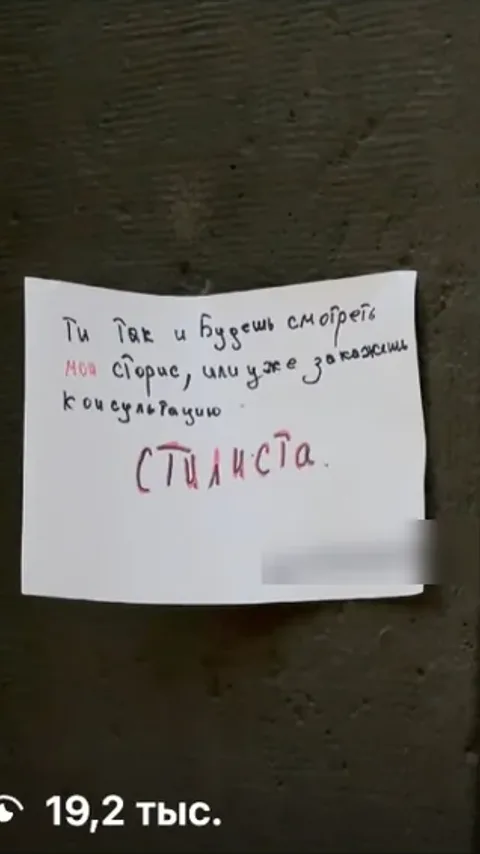 Ти так и будешь смотреть
мои сторис, или уже закажешь
консультацию
стилиста.
19,2 тыс.